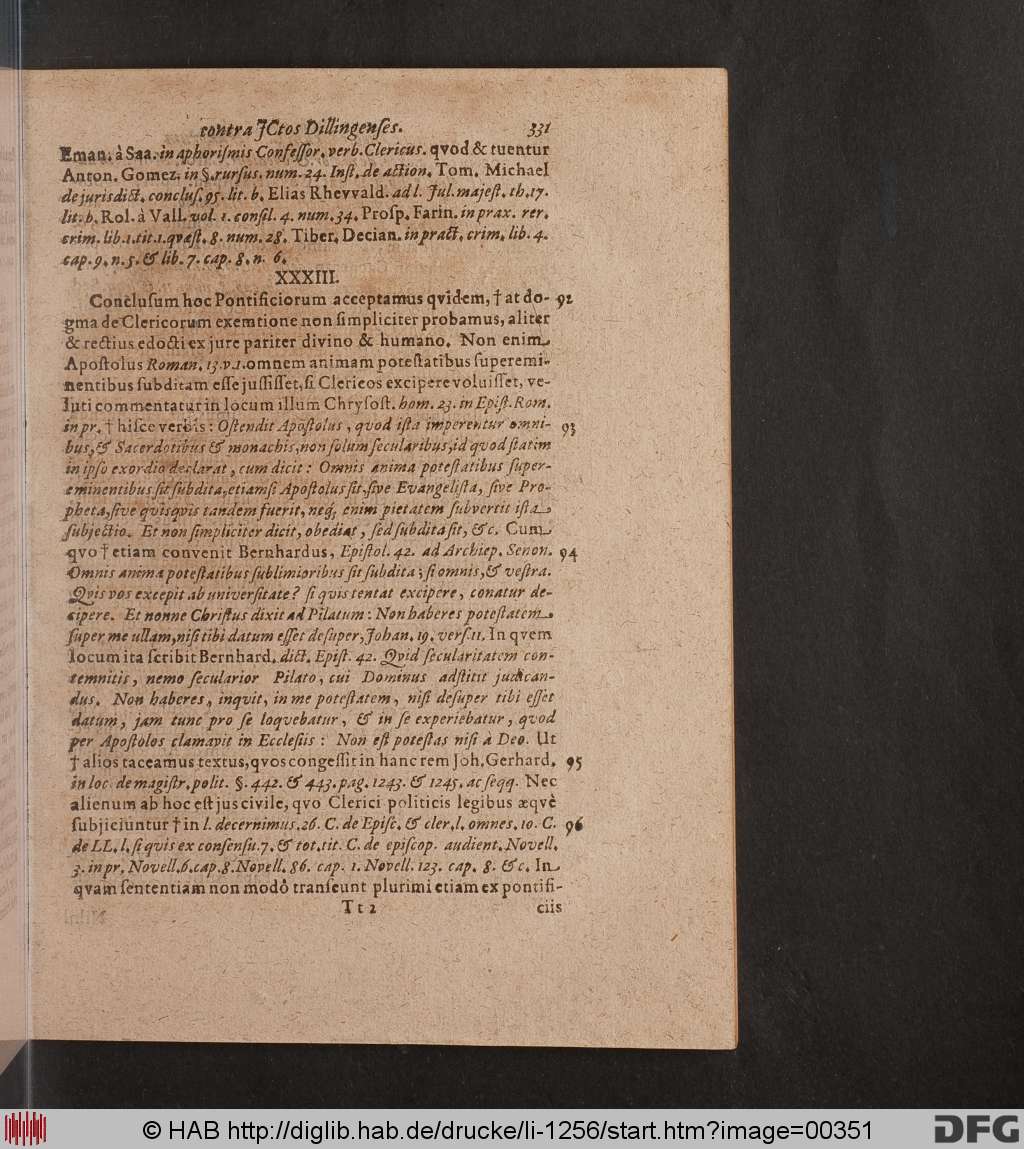 contra JCtos Dillingenſes. 331
Eman. à Saa. in aphoriſmis Confeſſor. verb. Clericus. qvod & tuentur
Anton. Gomez. in §. rurſus. num. 24. Inſt. de action. Tom. Michael
de jurisdict. concluſ. 95. lit. b. Elias Rhevvald. ad l. Jul. majeſt. th. 17.
lit. b. Rol. à Vall. vol. 1. conſil. 4. num. 34. Proſp. Farin. in prax. rer.
crim. lib. 1. tit. 1. qvæſt. 8. num. 28. Tiber. Decian. in pract. crim. lib. 4.
cap. 9. n. 5. & lib. 7. cap. 8. n. 6.
XXXIII.
Concluſum hoc Pontificiorum acceptamus qvidem, † at do- 92
gma de Clericorum exemtione non ſimpliciter probamus, aliter
& rectius edocti ex jure pariter divino & humano. Non enim
Apoſtolus Roman. 13. v. 1. omnem animam poteſtatibus ſuperemi-
nentibus ſubditam eſſe juſſiſſet, ſi Clericos excipere voluiſſet, ve-
luti commentatur in locum illum Chryſoſt. hom. 23. in Epiſt. Rom.
in pr. † hiſce verbis: Oſtendit Apoſtolus, quod iſta imperentur omni- 93
bus, & Sacerdotibus & monachis, non ſolum ſecularibus, id quod ſtatim
in ipſo exordio declarat, cum dicit: Omnis anima poteſtatibus ſuper-
eminentibus ſit ſubdita, etiamſi Apoſtolus ſit, ſive Evangeliſta, ſive Pro-
pheta, ſive qvisqvis tandem fuerit, neq; enim pietatem ſubvertit iſta
ſubjectio. Et non ſimpliciter dicit, obediat, ſed ſubdita ſit, &c. Cum
qvo † etiam convenit Bernhardus, Epiſtol. 42. ad Archiep. Senon. 94
Omnis anima poteſtatibus ſublimioribus ſit ſubdita; ſi omnis, & veſtra.
Qvis vos excepit ab univerſitate? ſi qvis tentat excipere, conatur de-
cipere. Et nonne Chriſtus dixit ad Pilatum: Non haberes poteſtatem
ſuper me ullam, niſi tibi datum eſſet deſuper, Johan. 19. verſ. 11. In qvem
locum ita ſcribit Bernhard. dict. Epiſt. 42. Qvid ſecularitatem con-
temnitis, nemo ſecularior Pilato, cui Dominus adſtitit judican-
dus. Non haberes, inqvit, in me poteſtatem, niſi deſuper tibi eſſet
datum, jam tunc pro ſe loqvebatur, & in ſe experiebatur, qvod
per Apoſtolos clamavit in Eccleſiis: Non eſt poteſtas niſi à Deo. Ut
† alios taceamus textus, qvos congeſſit in hanc rem Joh. Gerhard. 95
in loc. de magiſtr. polit. §. 442. & 443. pag. 1243. & 1245. ac ſeqq. Nec
alienum ab hoc eſt jus civile, qvo Clerici politicis legibus æqvè
ſubjiciuntur † in l. decernimus. 26. C. de Epiſc. & cler. l. omnes. 10. C. 96
de LL. l. ſi quis ex conſenſu. 7. & tot. tit. C. de epiſcop. audient. Novell.
3. in pr. Novell. 6. cap. 8. Novell. 86. cap. 1. Novell. 123. cap. 8. &c. In
qvam ſententiam non modò tranſeunt plurimi etiam ex pontifi-
Tt 2 ciis
© HAB http://diglib.hab.de/drucke/li-1256/start.htm?image=00351
DFG